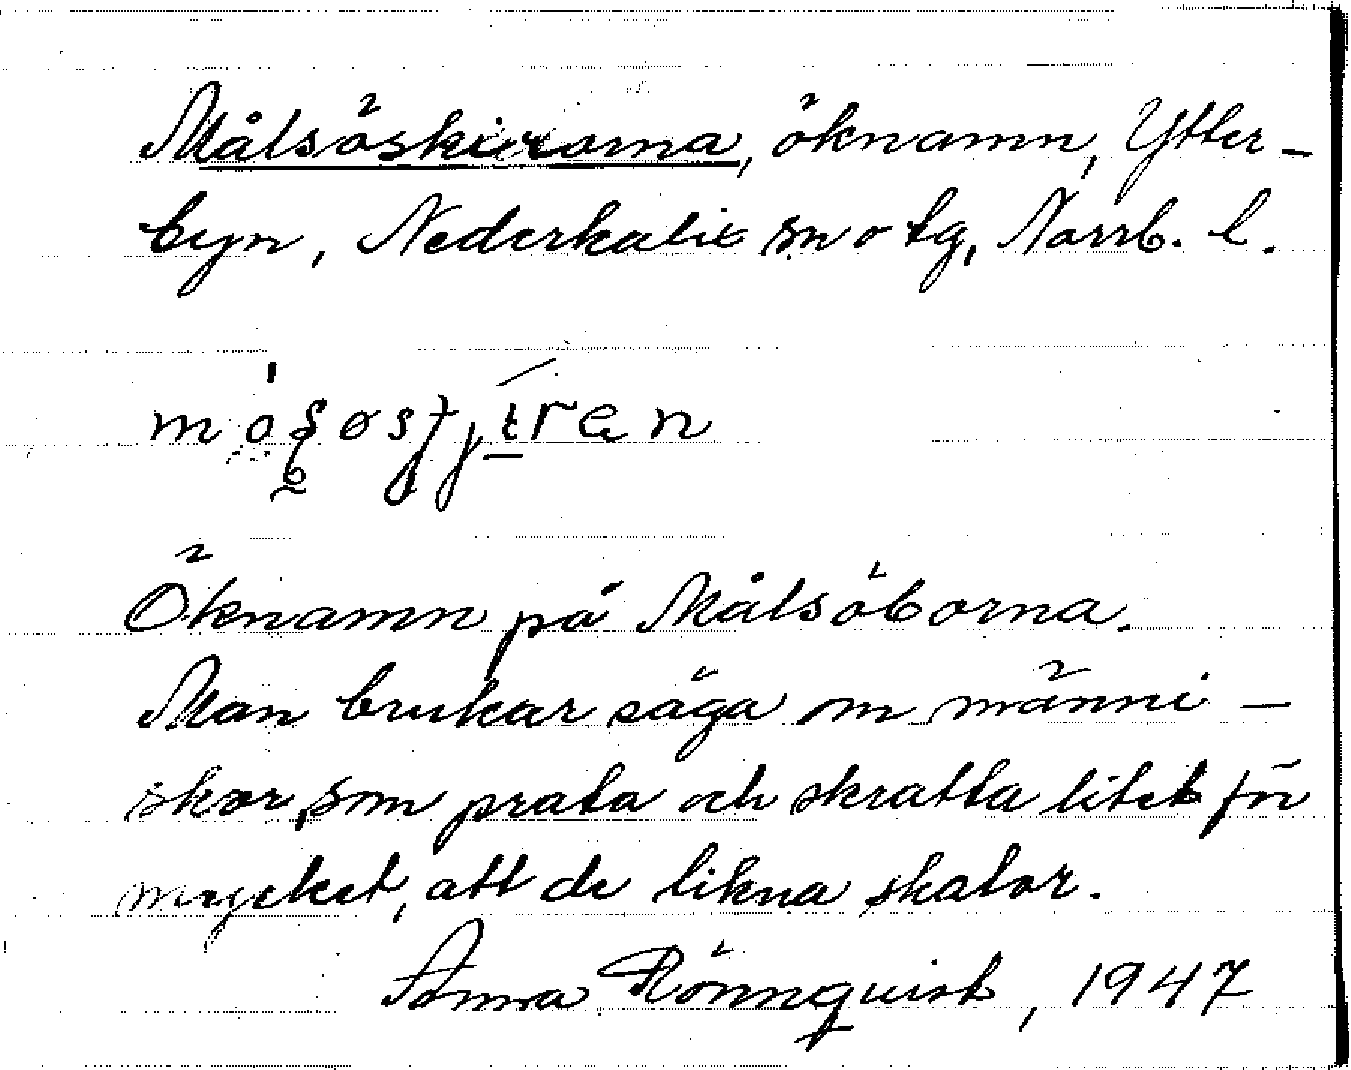 Målsöskirorna, öknamn, Ytter-
byn, Nederkalix sn o tg, Norrb. l.
Öknamn på Målsöborna.
Man brukar säga om männi-
skor, som prata och skratta litet för
mycket, att de likna skator.
Anna Rönnquist, 1947